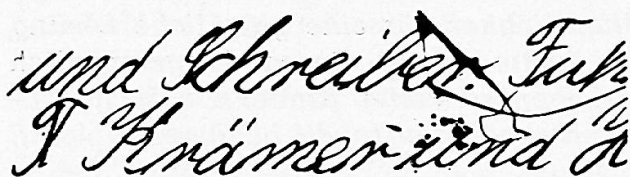 und Schreiber.
T Krämer und